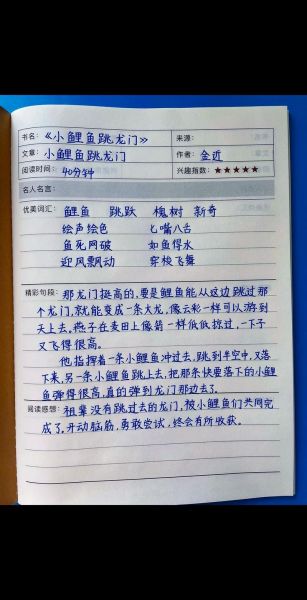 书名：《小鲤鱼跳龙门》 来源：
文章：小鲤鱼跳龙门 作者：金近
阅读时间：40分钟 兴趣指数：★★★★★
名人名言：
优美词汇： 鲤鱼 跳跃 槐树 新奇
绘声绘色 七嘴八舌
鱼死网破 如鱼得水
迎风飘动 穿梭飞舞
精彩句段：那龙门挺高的，要是鲤鱼能从这边跳过那
个龙门，就能变成一条大龙，像云彩一样可以游到
天上去。燕子在麦田上像箭一样低低掠过，一下子
又飞得很高。
他指挥着一条小鲤鱼冲过去，跳到半空中，又落
下来，另一条小鲤鱼跳上去，把那条快要落下的小鲤
鱼弹得很高，真的弹到龙门那边去了。
阅读感想：祖辈没有跳过去的龙门，被小鲤鱼们共同完
成了，开动脑筋，勇敢尝试，终会有所收获。